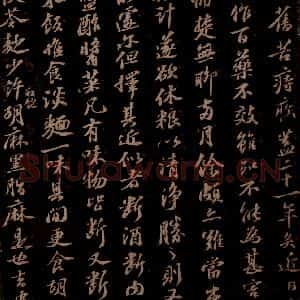 舊苦痔疾蓋二十一年矣近日
作百藥不效雖知不能為甚害
痛楚無聊兩月餘頗亦難當
計遂欲休粮以清淨勝之則又
遽尔但擇其近似者斷酒斷肉
鹽酢醬菜凡有味物皆斷又斷
米飯惟食淡麵一味其間更食胡
苓麨少許取飽胡麻黑脂麻是也去皮
Shufawang.CN